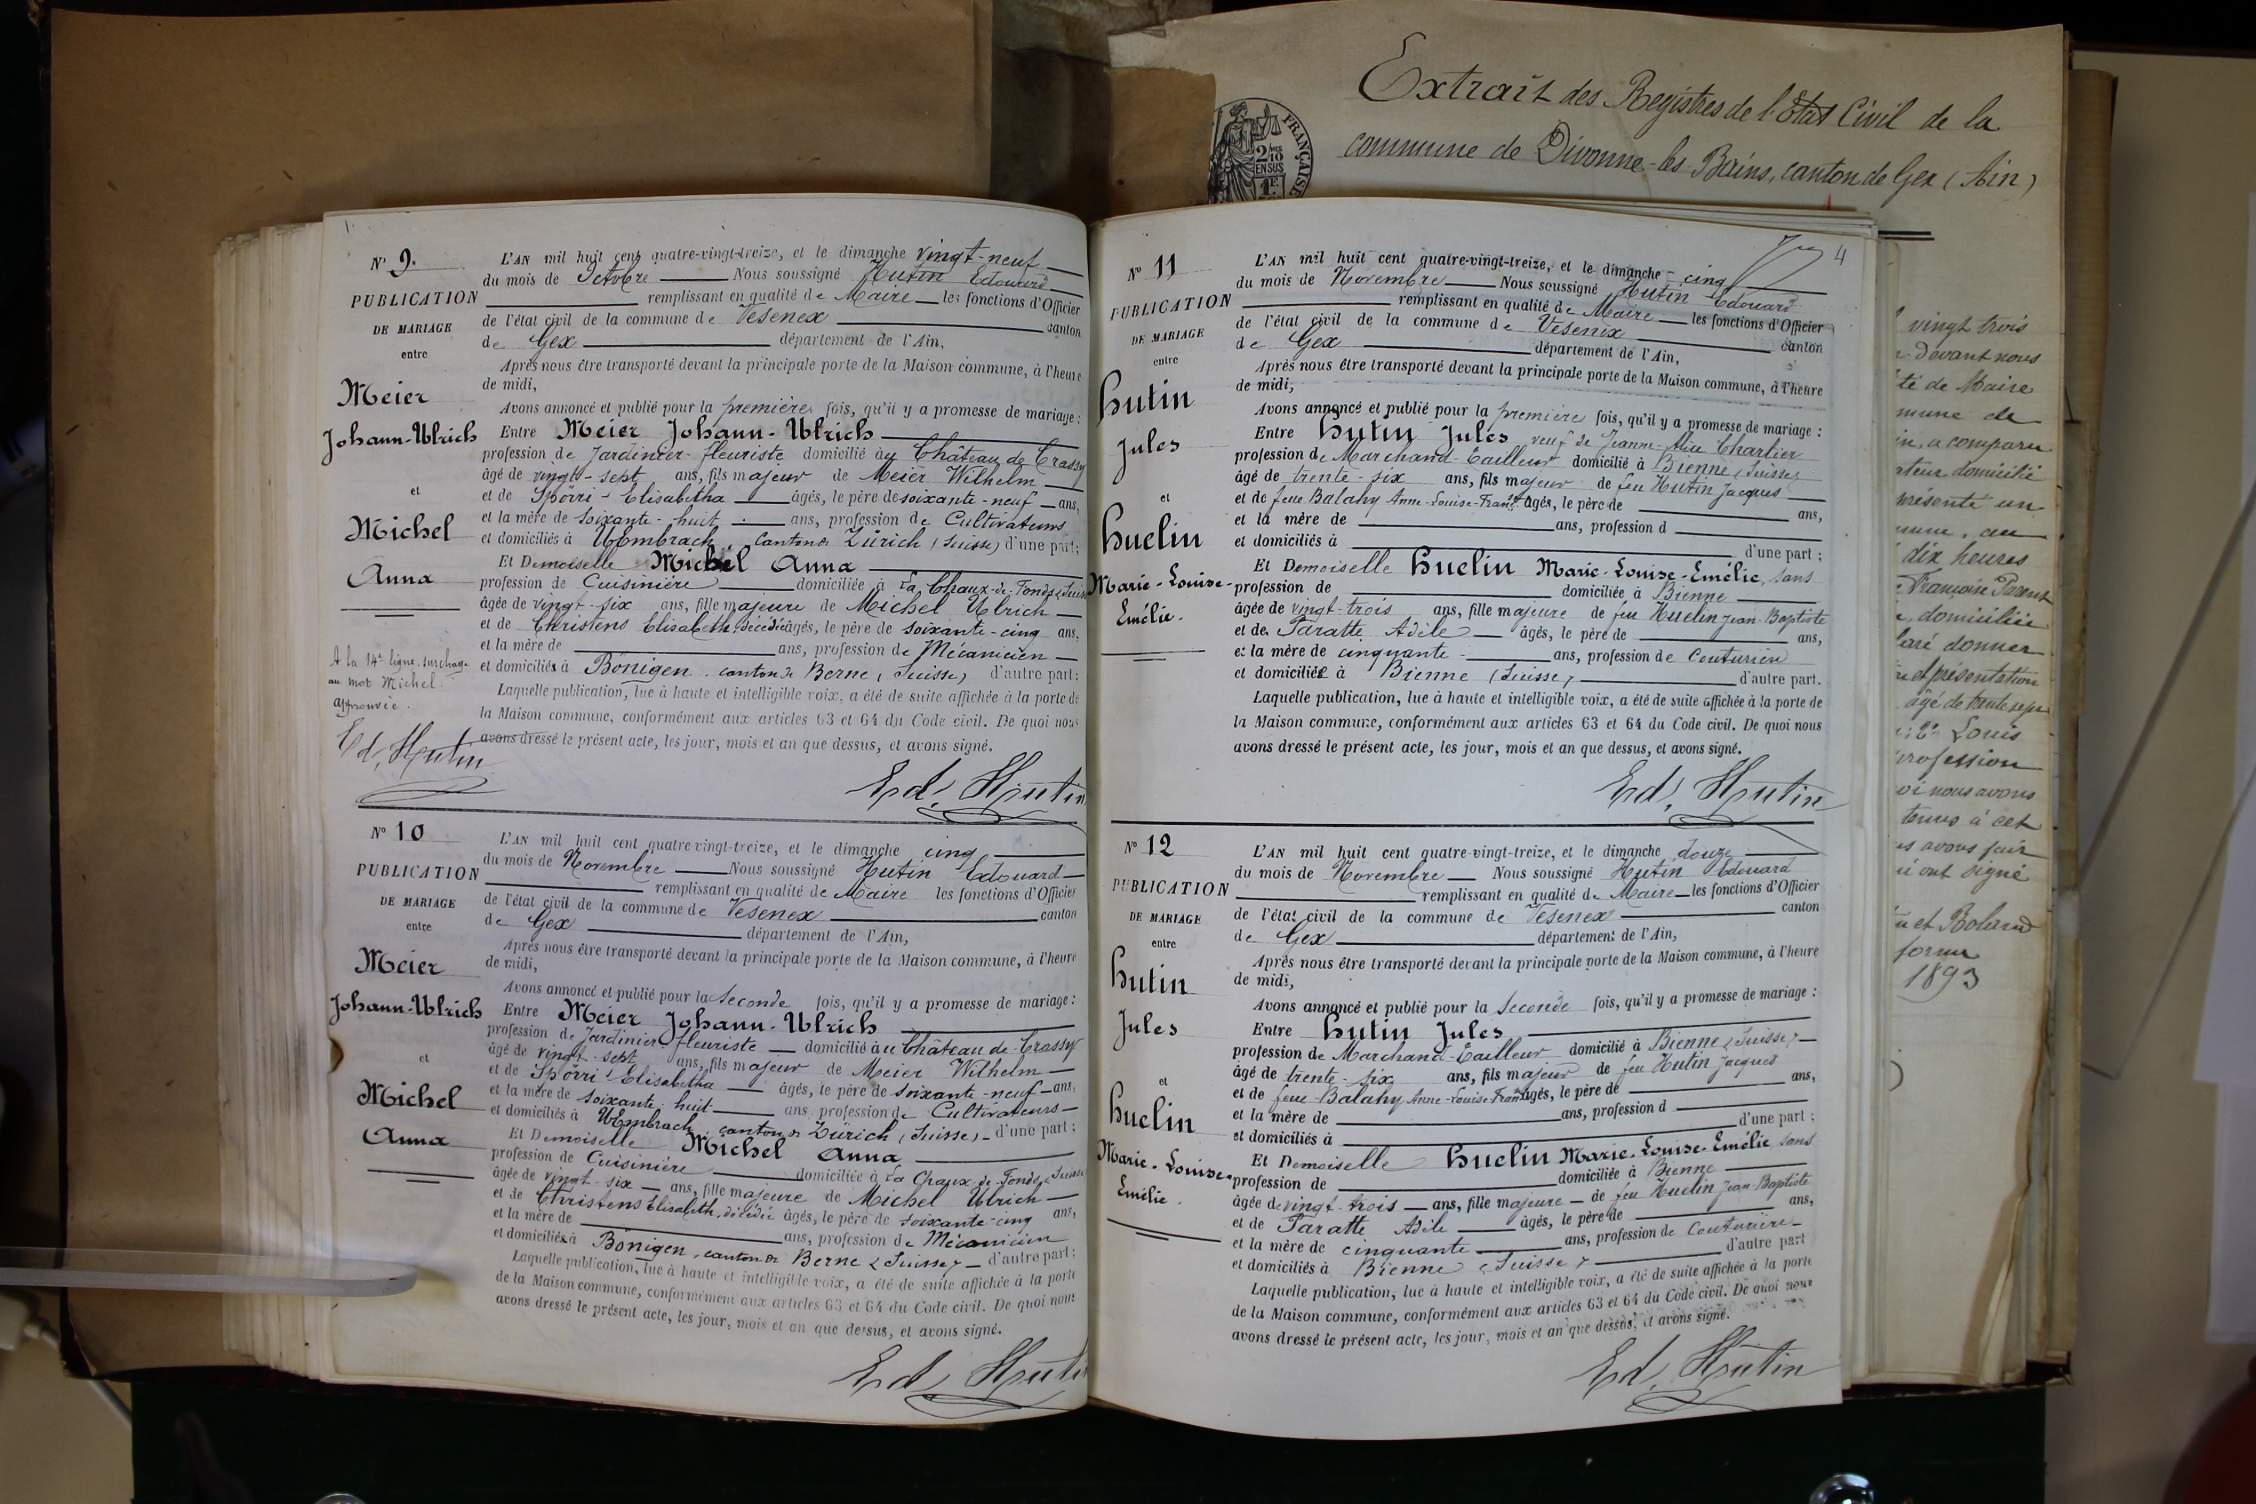 Extrait des Registres de l'Etat Civil de la
commune de Divonne-les-Bains, canton de Gex (Ain)
FRANÇAISE
2/10
EN SUS
1F
N° 9.
PUBLICATION
DE MARIAGE
entre
Meier
Johann-Ulrich
et
Michel
Anna
A la 14e ligne, surchage
au mot Michel.
approuvée.
Ed. Hutin
L'AN mil huit cent quatre-vingt-treize, et le dimanche vingt-neuf
du mois de Octobre Nous soussigné Hutin Edouard
remplissant en qualité de Maire les fonctions d'Officier
de l'état civil de la commune de Vesenex canton
de Gex département de l'Ain,
Après nous être transporté devant la principale porte de la Maison commune, à l'heure
de midi,
Avons annoncé et publié pour la première fois, qu'il y a promesse de mariage :
Entre Meier Johann-Ulrich
profession de Jardinier-fleuriste domicilié au Château de Crassy
âgé de vingt-sept ans, fils majeur de Meier Wilhelm
et de Spörri-Elisabetha âgés, le père de soixante-neuf ans,
et la mère de soixante-huit ans, profession de Cultivateurs
et domiciliés à canton de Zürich (Suisse) d'une part;
Et Demoiselle Michel Anna
profession de Cuisinière domiciliée à La Chaux-de-Fonds (Suisse
âgée de vingt-six ans, fille majeure de Michel Ulrich
et de Christens Elisabeth, décédée âgés, le père de soixante-cinq ans,
et la mère de ans, profession de Mécanicien
et domiciliés à Bönigen, canton de Berne, (Suisse) d'autre part:
Laquelle publication, lue à haute et intelligible voix, a été de suite affichée à la porte de
la Maison commune, conformément aux articles 63 et 64 du Code civil. De quoi nous
avons dressé le présent acte, les jour, mois et an que dessus, et avons signé.
Ed. Hutin
N° 10
PUBLICATION
DE MARIAGE
entre
Meier
Johann-Ulrich
et
Michel
Anna
L'AN mil huit cent quatre-vingt-treize, et le dimanche cinq
du mois de Novembre Nous soussigné Hutin Edouard
remplissant en qualité de Maire les fonctions d'Officier
de l'état civil de la commune de Vesenex canton
de Gex département de l'Ain,
Après nous être transporté devant la principale porte de la Maison commune, à l'heure
de midi,
Avons annoncé et publié pour la Seconde fois, qu'il y a promesse de mariage :
Entre Meier Johann-Ulrich
profession de Jardinier fleuriste domicilié au Château de Crassy
âgé de vingt-sept ans, fils majeur de Meier Wilhelm
et de Spörri Elisabetha âgés, le père de soixante-neuf ans,
et la mère de soixante-huit ans, profession de Cultivateurs
et domiciliés à canton de Zürich (Suisse) d'une part ;
Et Demoiselle Michel Anna
profession de Cuisinière domiciliée à La Chaux-de-Fonds (Suisse
âgée de vingt-six ans, fille majeure de Michel Ulrich
et de Christens Elisabeth, décédée âgés, le père de soixante-cinq ans,
et la mère de ans, profession de Mécanicien
et domiciliés à Bönigen, canton de Berne (Suisse) d'autre part:
Laquelle publication, lue à haute et intelligible voix, a été de suite affichée à la porte
de la Maison commune, conformément aux articles 63 et 64 du Code civil. De quoi nous
avons dressé le présent acte, les jour, mois et an que dessus, et avons signé.
Ed. Hutin
4
N° 11
PUBLICATION
DE MARIAGE
entre
Hutin
Jules
et
Huelin
Marie-Louise-
Emélie.
L'AN mil huit cent quatre-vingt-treize, et le dimanche cinq
du mois de Novembre Nous soussigné Hutin Edouard
remplissant en qualité de Maire les fonctions d'Officier
de l'état civil de la commune de Vesenex canton
de Gex département de l'Ain,
Après nous être transporté devant la principale porte de la Maison commune, à l'heure
de midi,
Avons annoncé et publié pour la première fois, qu'il y a promesse de mariage :
Entre Hutin Jules veuf de Jeanne-Alice Charlier
profession de Marchand-Tailleur domicilié à Bienne (Suisse)
âgé de trente-six ans, fils majeur de feu Hutin Jacques
et de feue Balahy Anne-Louise-Franç. âgés, le père de ans,
et la mère de ans, profession d
et domiciliés à d'une part ;
Et Demoiselle Huelin Marie-Louise-Emélie, sans
profession de domiciliée à Bienne
âgée de vingt-trois ans, fille majeure de feu Huelin Jean-Baptiste
et de Paratte Adèle âgés, le père de ans,
et la mère de cinquante ans, profession de Couturière
et domiciliée à Bienne (Suisse) d'autre part.
Laquelle publication, lue à haute et intelligible voix, a été de suite affichée à la porte de
la Maison commune, conformément aux articles 63 et 64 du Code civil. De quoi nous
avons dressé le présent acte, les jour, mois et an que dessus, et avons signé.
Ed. Hutin
N° 12
PUBLICATION
DE MARIAGE
entre
Hutin
Jules
et
Huelin
Marie-Louise-
Emélie.
L'AN mil huit cent quatre-vingt-treize, et le dimanche douze
du mois de Novembre Nous soussigné Hutin Edouard
remplissant en qualité de Maire les fonctions d'Officier
de l'état civil de la commune de Vesenex canton
de Gex département de l'Ain,
Après nous être transporté devant la principale porte de la Maison commune, à l'heure
de midi,
Avons annoncé et publié pour la Seconde fois, qu'il y a promesse de mariage :
Entre Hutin Jules
profession de Marchand-Tailleur domicilié à Bienne (Suisse)
âgé de trente-six ans, fils majeur de feu Hutin Jacques
et de feue Balahy Anne-Louise-Franç. âgés, le père de ans,
et la mère de ans, profession d
et domiciliés à d'une part ;
Et Demoiselle Huelin Marie-Louise-Emélie sans
profession de domiciliée à Bienne
âgée de vingt-trois ans, fille majeure de feu Huelin Jean-Baptiste
et de Paratte Adèle âgés, le père de ans,
et la mère de cinquante ans, profession de Couturière
et domiciliés à Bienne (Suisse) d'autre part
Laquelle publication, lue à haute et intelligible voix, a été de suite affichée à la porte
de la Maison commune, conformément aux articles 63 et 64 du Code civil. De quoi nous
avons dressé le présent acte, les jour, mois et an que dessus, et avons signé.
Ed. Hutin
vingt trois
devant nous
té de Maire
mune de
in, a comparu
ateur domicilié
présenté un
mune, au
dix heures
Françoise Parent
domiciliée
laré donner
et présentation
âgé de trente sept
Louis
profession
oi nous avons
tenus à cet
s avons fait
ui ont signé
et Boland
forme
1893